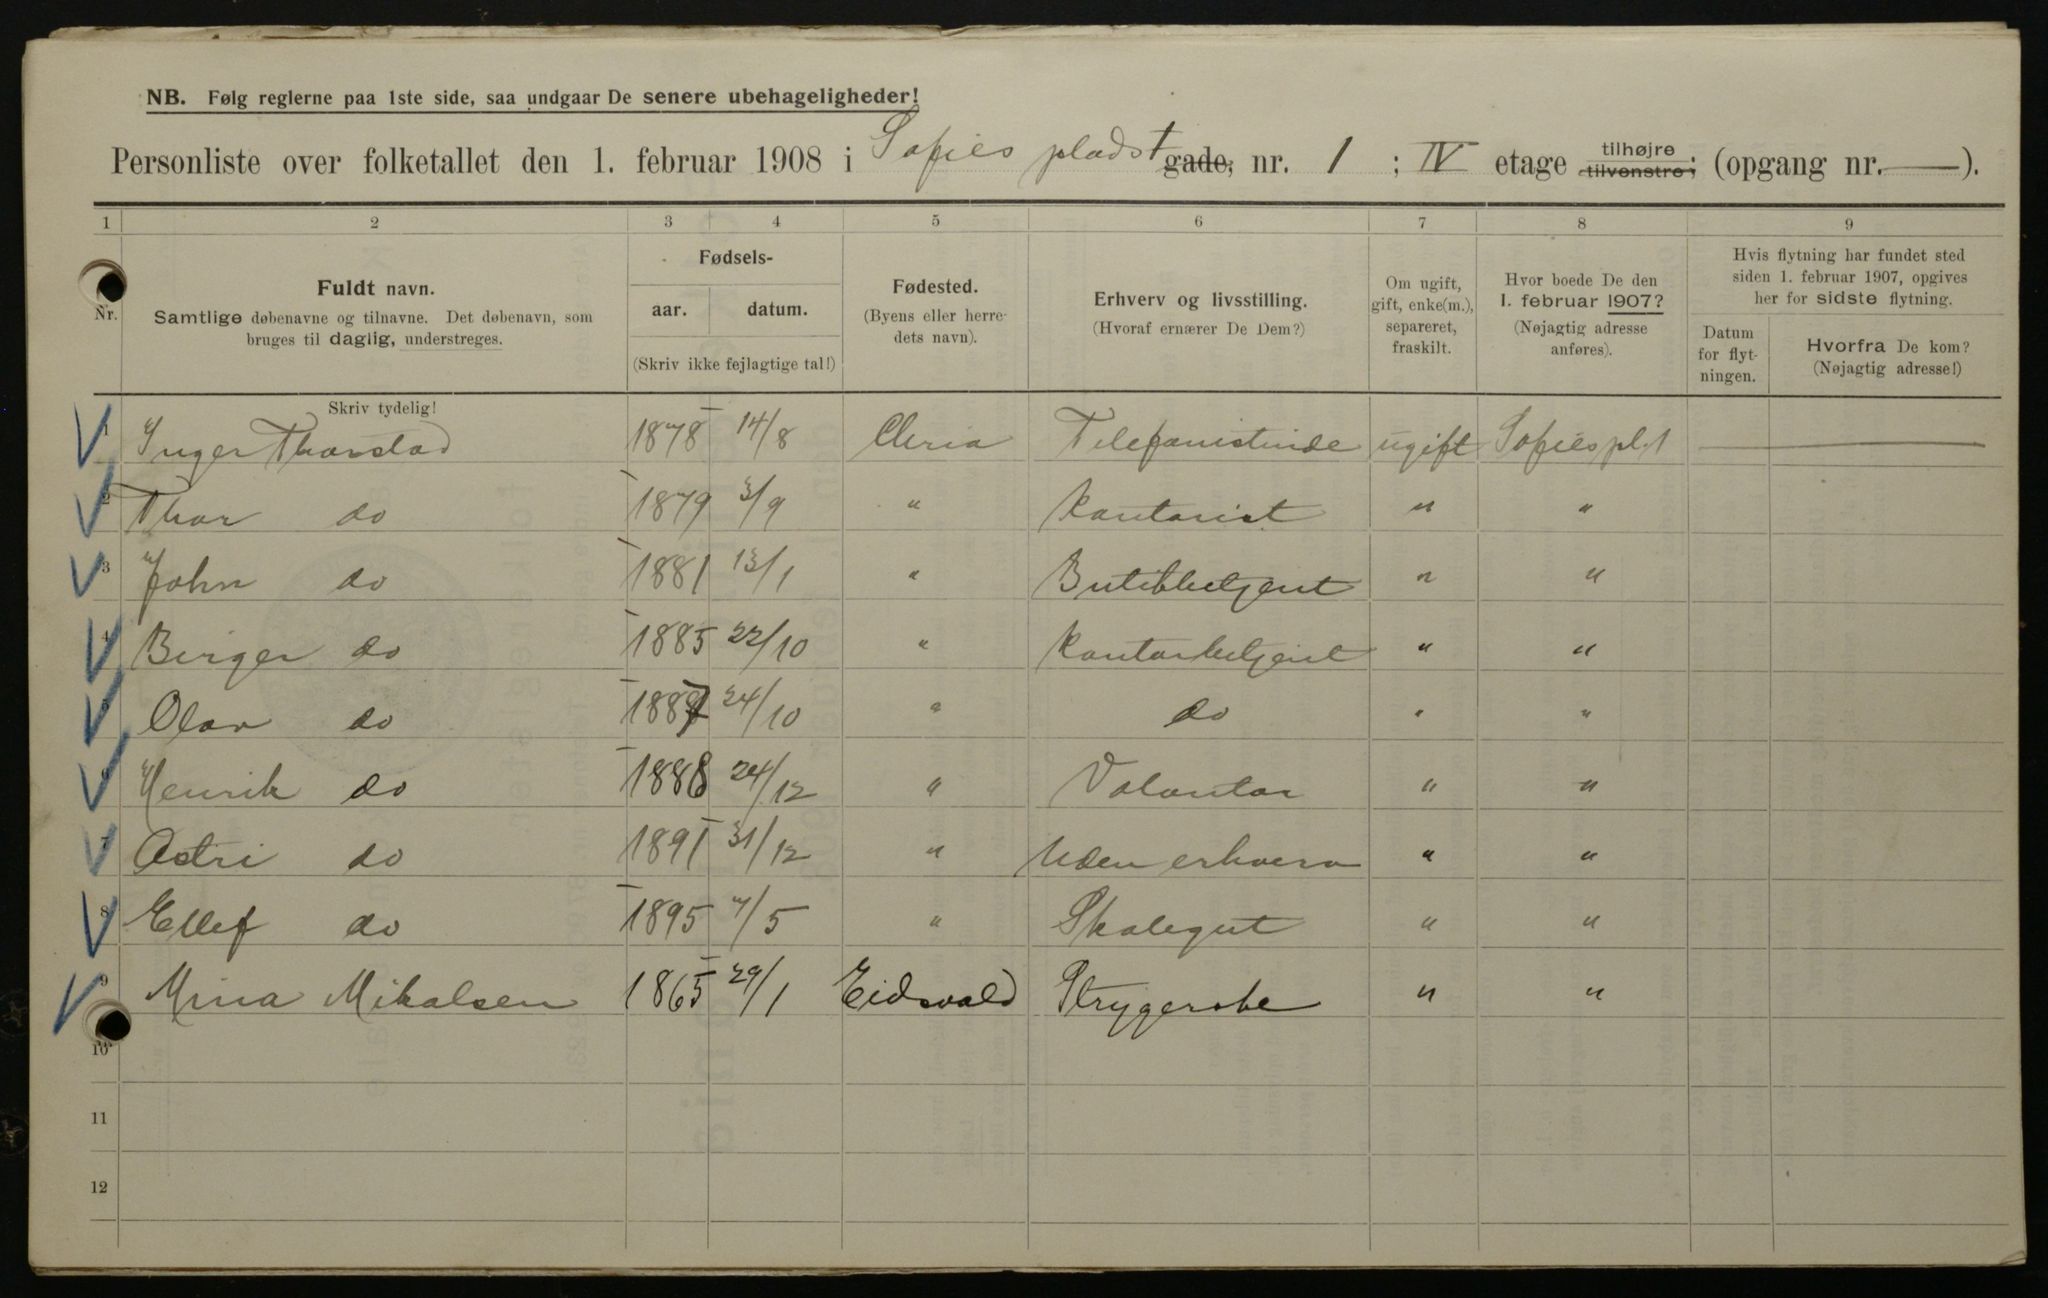 NB. Følg reglerne paa 1ste side, saa undgaar De senere ubehageligheder!
Personliste over folketallet den 1. februar 1908 i Sofies plads gade, nr. 1 ; IV etage tilhøjre tilvenstre; (opgang nr. — ).
1 2 3 4 5 6 7 8 9
Nr.
Fuldt navn.
Samtlige døbenavne og tilnavne. Det døbenavn, som
bruges til daglig, understreges.
Fødsels-
aar. datum.
(Skriv ikke fejlagtige tal!)
Fødested.
(Byens eller herre-
dets navn).
Erhverv og livsstilling.
(Hvoraf ernærer De Dem?)
Om ugift,
gift, enke(m.),
separeret,
fraskilt.
Hvor boede De den
1. februar 1907?
(Nøjagtig adresse
anføres).
Hvis flytning har fundet sted
siden 1. februar 1907, opgives
her for sidste flytning.
Datum
for flyt-
ningen.
Hvorfra De kom?
(Nøjagtig adresse!)
Skriv tydelig!
1 Inger Thorstad 1878 14/8 Chria Telefonistinde ugift Sofies pl. 1
2 Thor do 1879 3/9 " Kontorist " "
3 John do 1881 13/1 " Butikbetjent " "
4 Birger do 1885 22/10 " Kontorbetjent " "
5 Olav do 1887 24/10 " do " "
6 Henrik do 1888 24/12 " Volontør " "
7 Astri do 1891 31/12 " Uden erhverv " "
8 Ellef do 1895 7/5 " Skolegut " "
9 Mina Mikalsen 1865 29/1 Eidsvold Strygerske " "
10
11
12